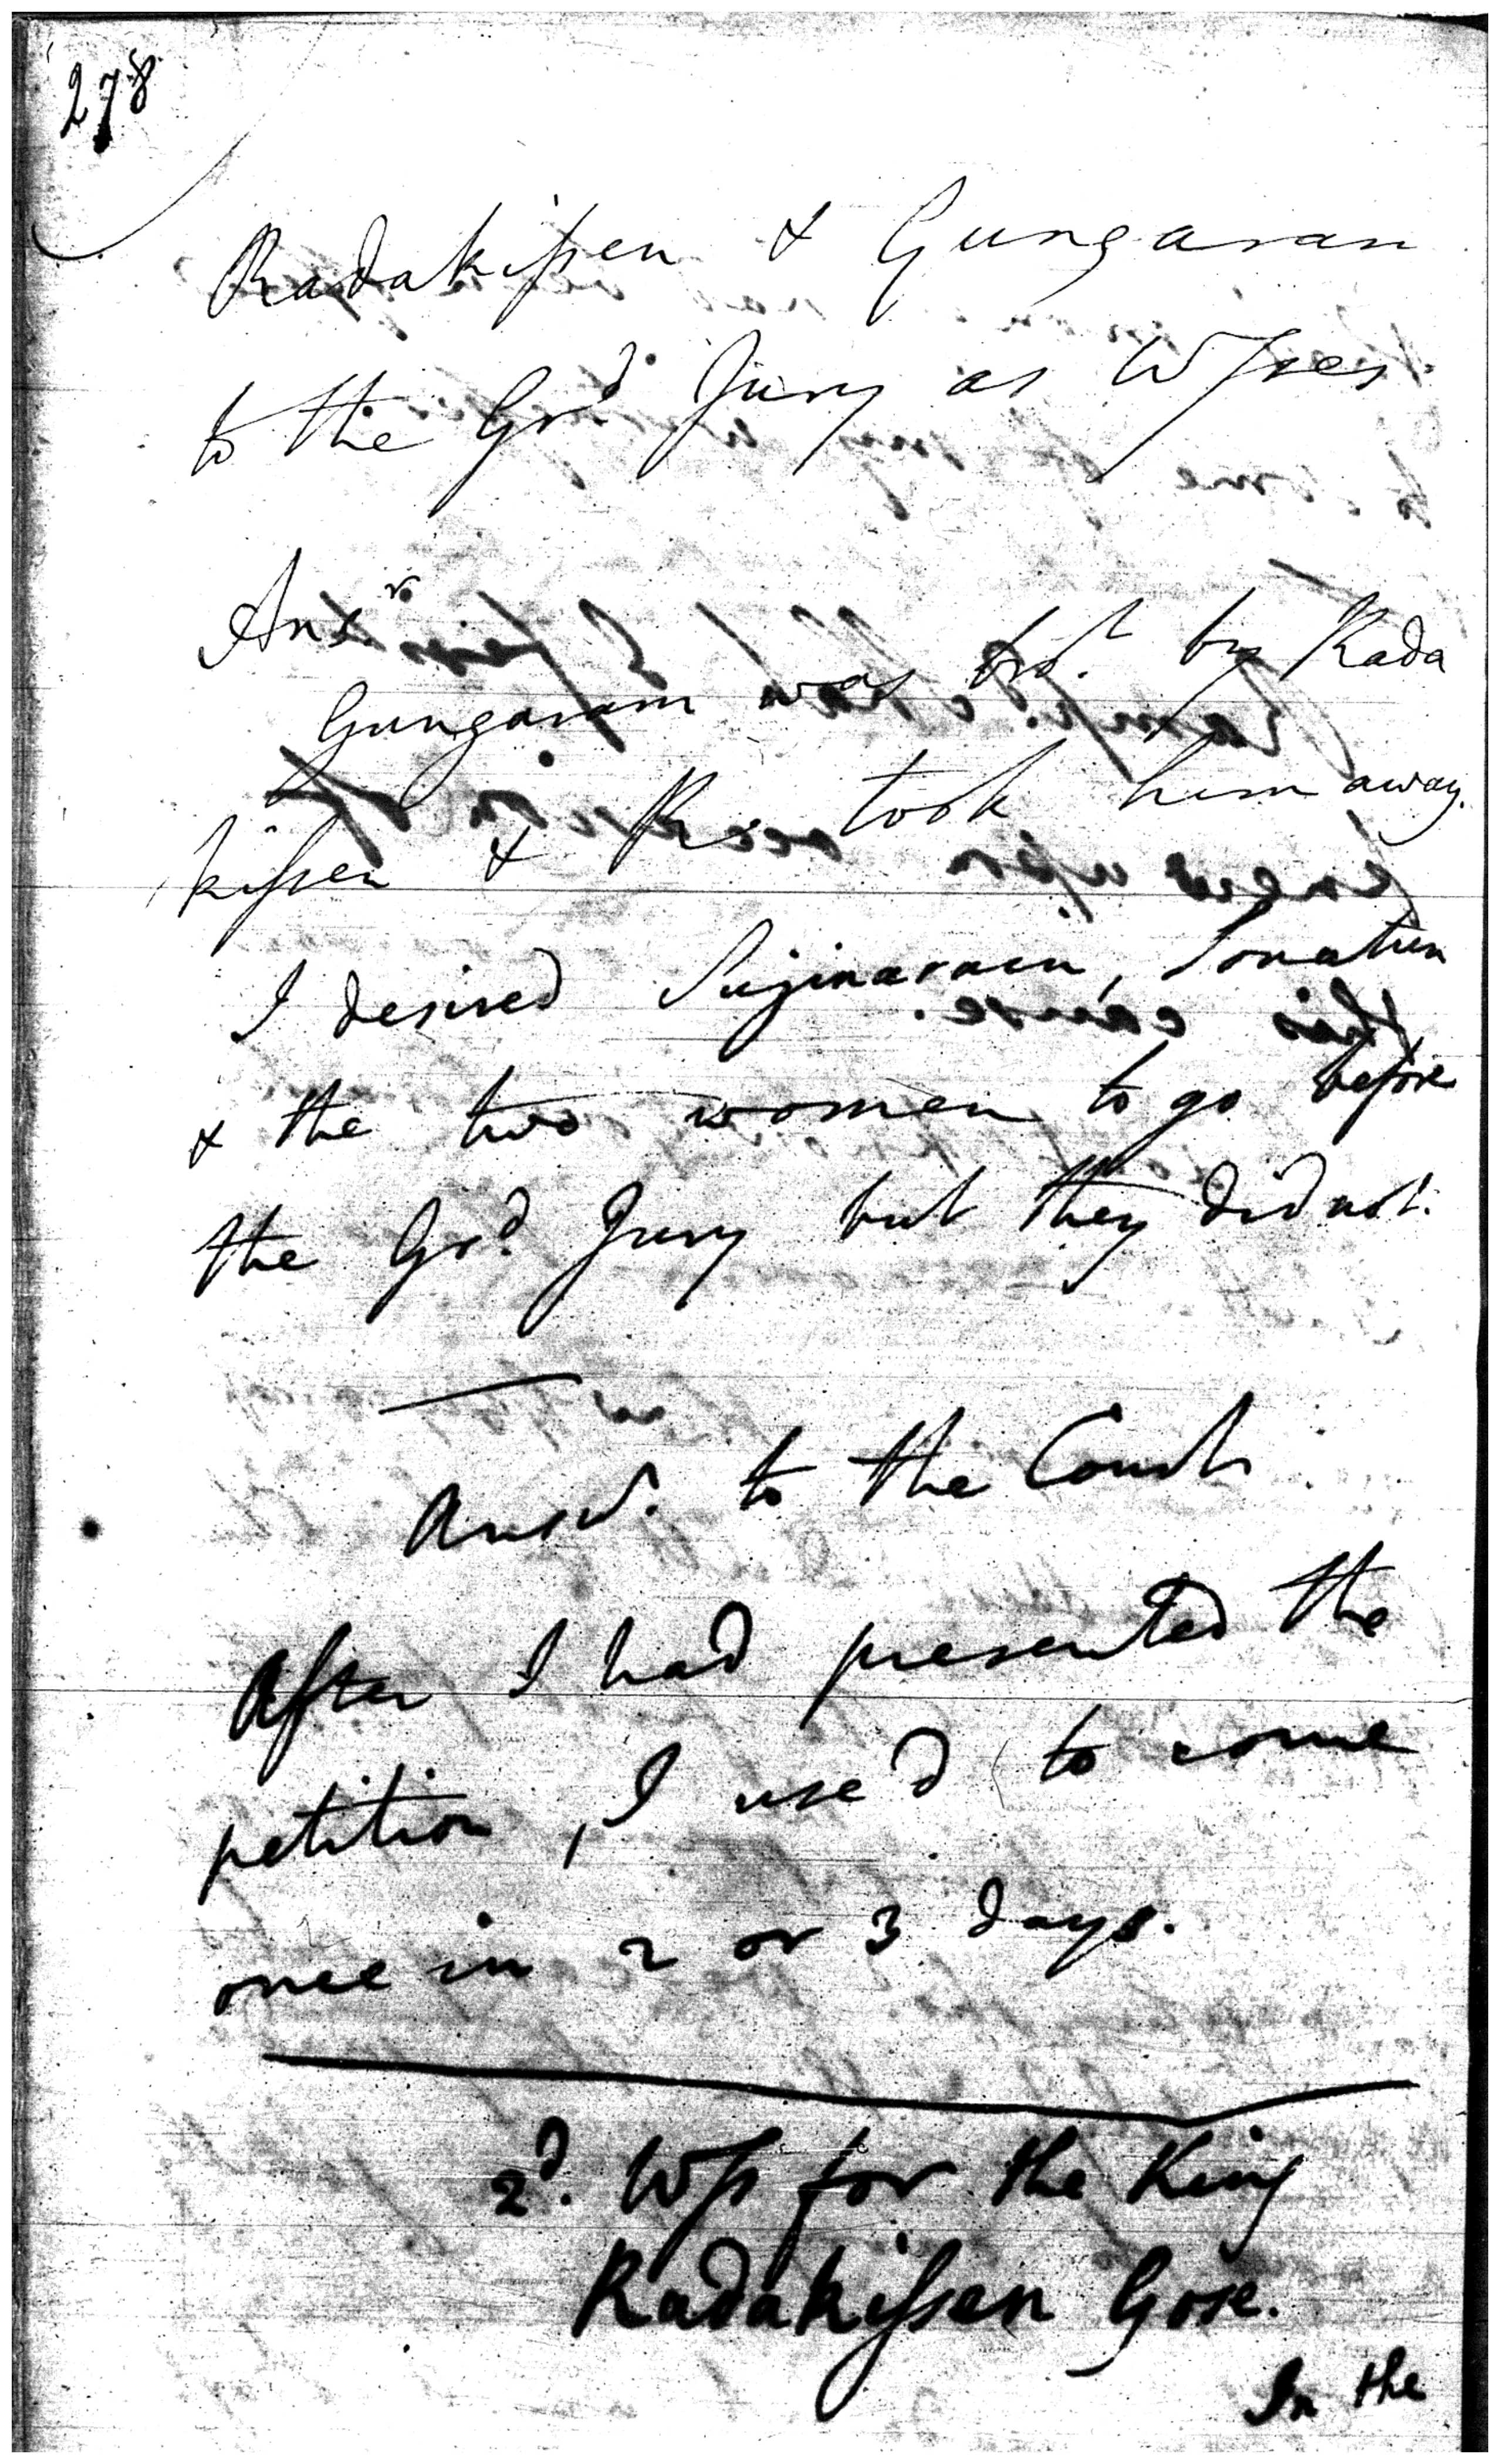 278
Radakissen & Gungaram
to the Grd Jury as Wsses
Ansr
Gungaram was brot. by Rada
kissen & R. took him away.
I desired Sujinarain, Sonatun
& the two women to go before
the Grd. Jury but they did not.
Answ. to the Court
After I had presented the
petition, I use'd to come
once in 2 or 3 days.
2d. Wss for the King
Radakissen Gose.
In the